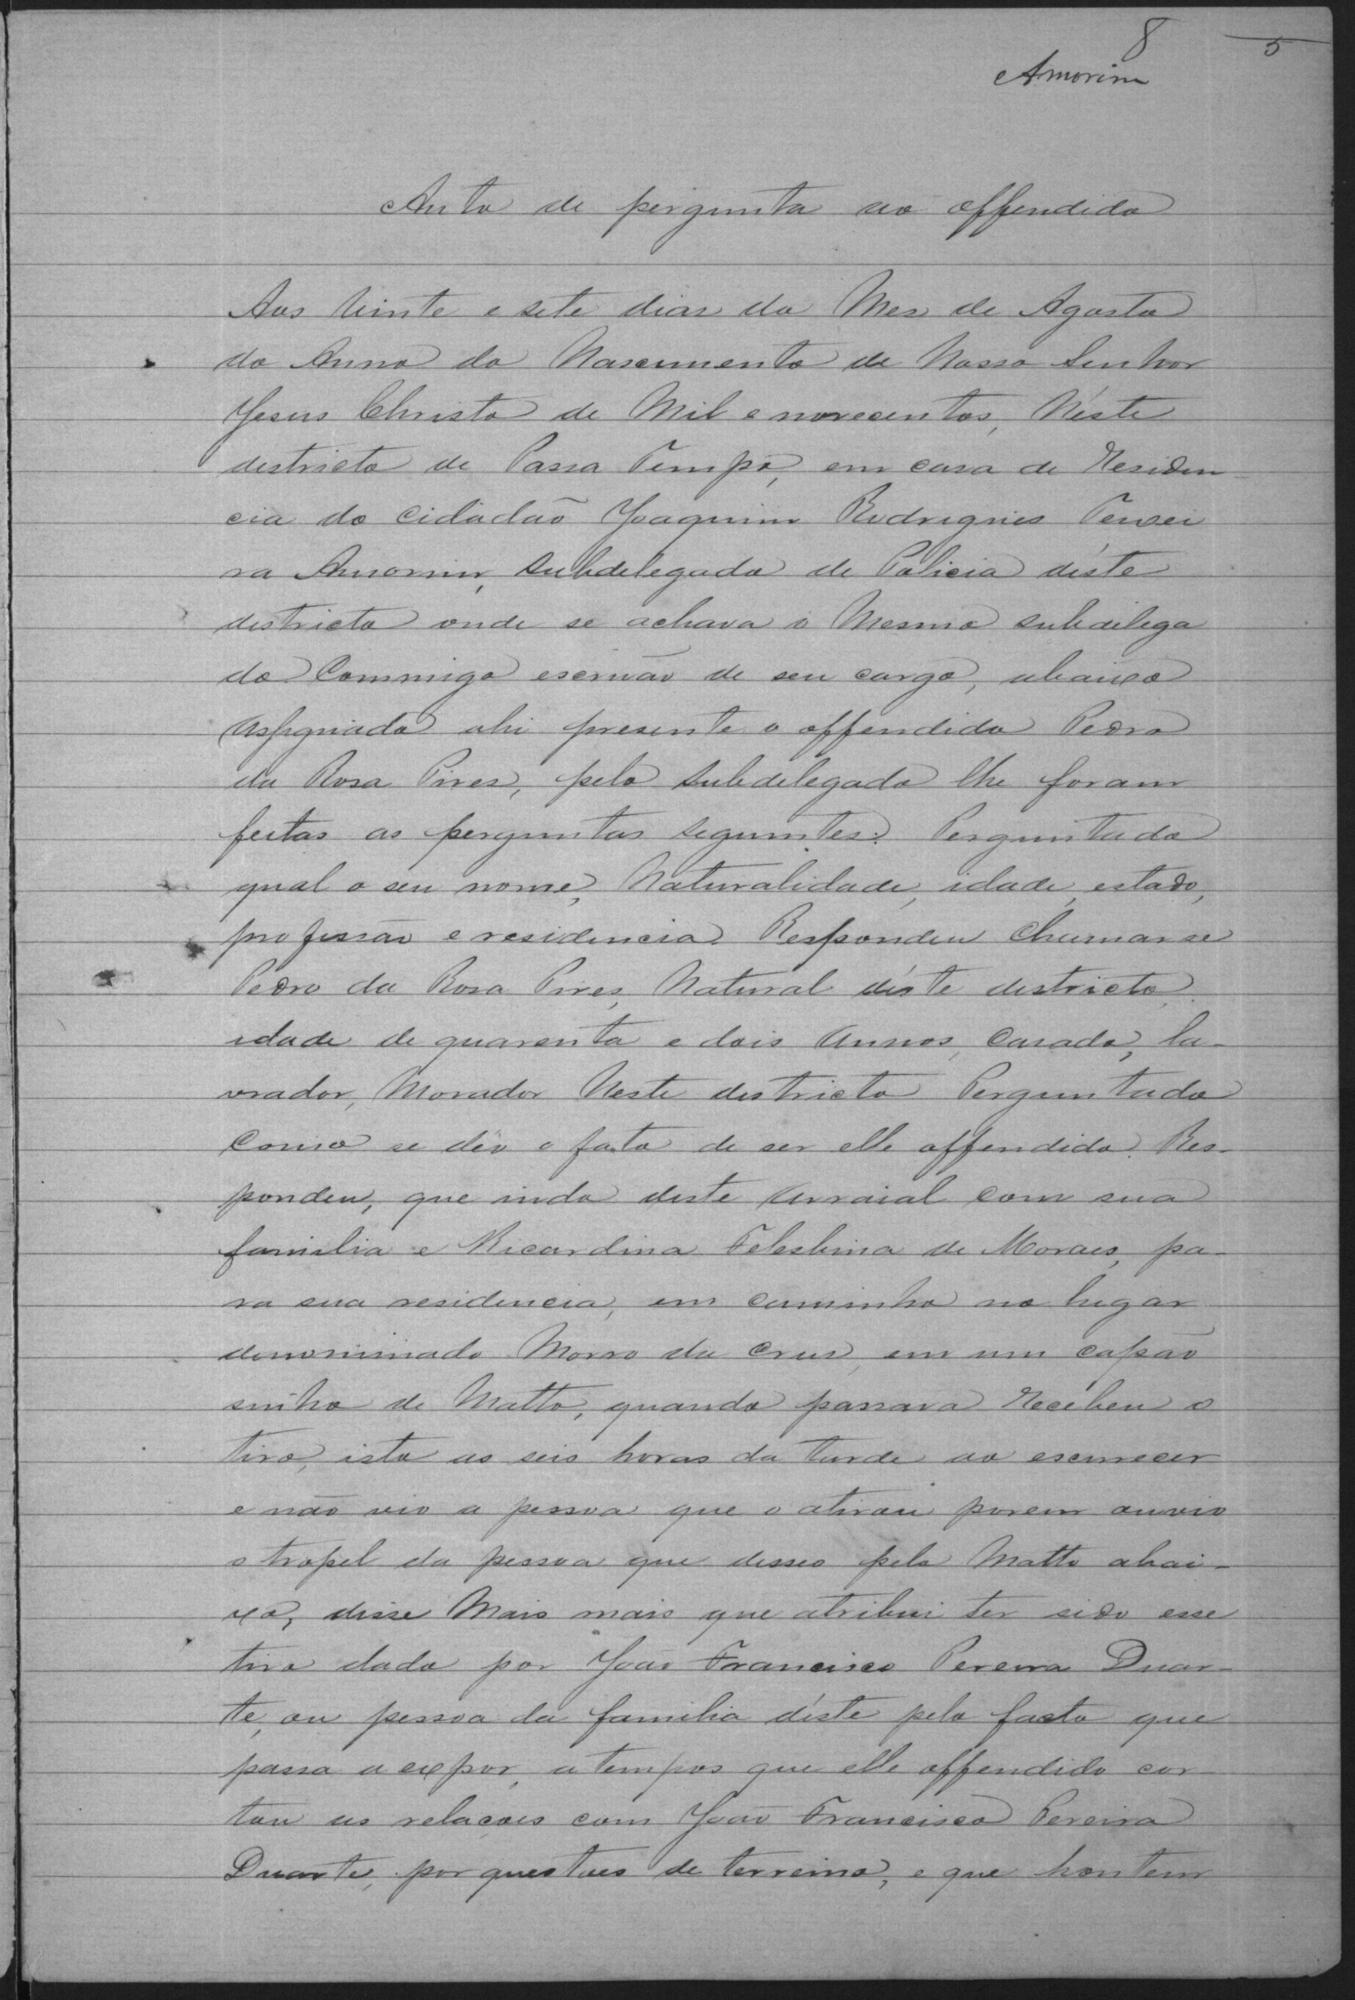 8
5
Amorim
Auto de pergunta ao offendido
Aos Vinte e sete dias do Mes de Agosto
do Anno do Nascimento de Nosso Senhor
Jesus Christo de Mil e novecentos, N'éste
destricto de Passa Tempo, em casa de Residen
cia do cidadão Joaquim Rodrigues Teixei
ra Amorim, subdelegado de Policia déste
destricto onde se achava o Mesmo subdelega
do Commigo escrivão de seu cargo, abaixo
assignado ahi presente o offendido Pedro
da Rosa Pires, pelo subdelegado lhe foram
feitas as perguntas seguintes: Perguntado
qual o seu nome, Naturalidade, idade, estado,
profissão e residencia. Respondeu chamar se
Pedro da Rosa Pires, Natural déste destricto,
idade de quarenta e dois annos, Casado, la-
vrador, Morador Neste destricto Perguntado
Como se déo o facto de ser elle offendido. Res-
pondeu, que indo deste arraial com sua
familia e Ricardina Felesbina de Moraes, pa-
ra sua residencia, em caminho no lugar
denominado Morro da Crus, em um capão
sinho de Matto, quando passava Recebeu o
tiro, isto as seis horas da tarde ao escurecer
e não vio a pessoa que o atirou porem ouvio
o tropel da pessoa que desseo pelo Matto abai-
xo, disse Mais mais que atribui ter sido esse
tiro dado por João Francisco Pereira Duar-
te, ou pessoa da familia déste pelo facto que
passa a expor, a tempos que elle offendido cor
tou as relacoes com João Francisco Pereira
Duarte, por questoes de terreino, e que hontem